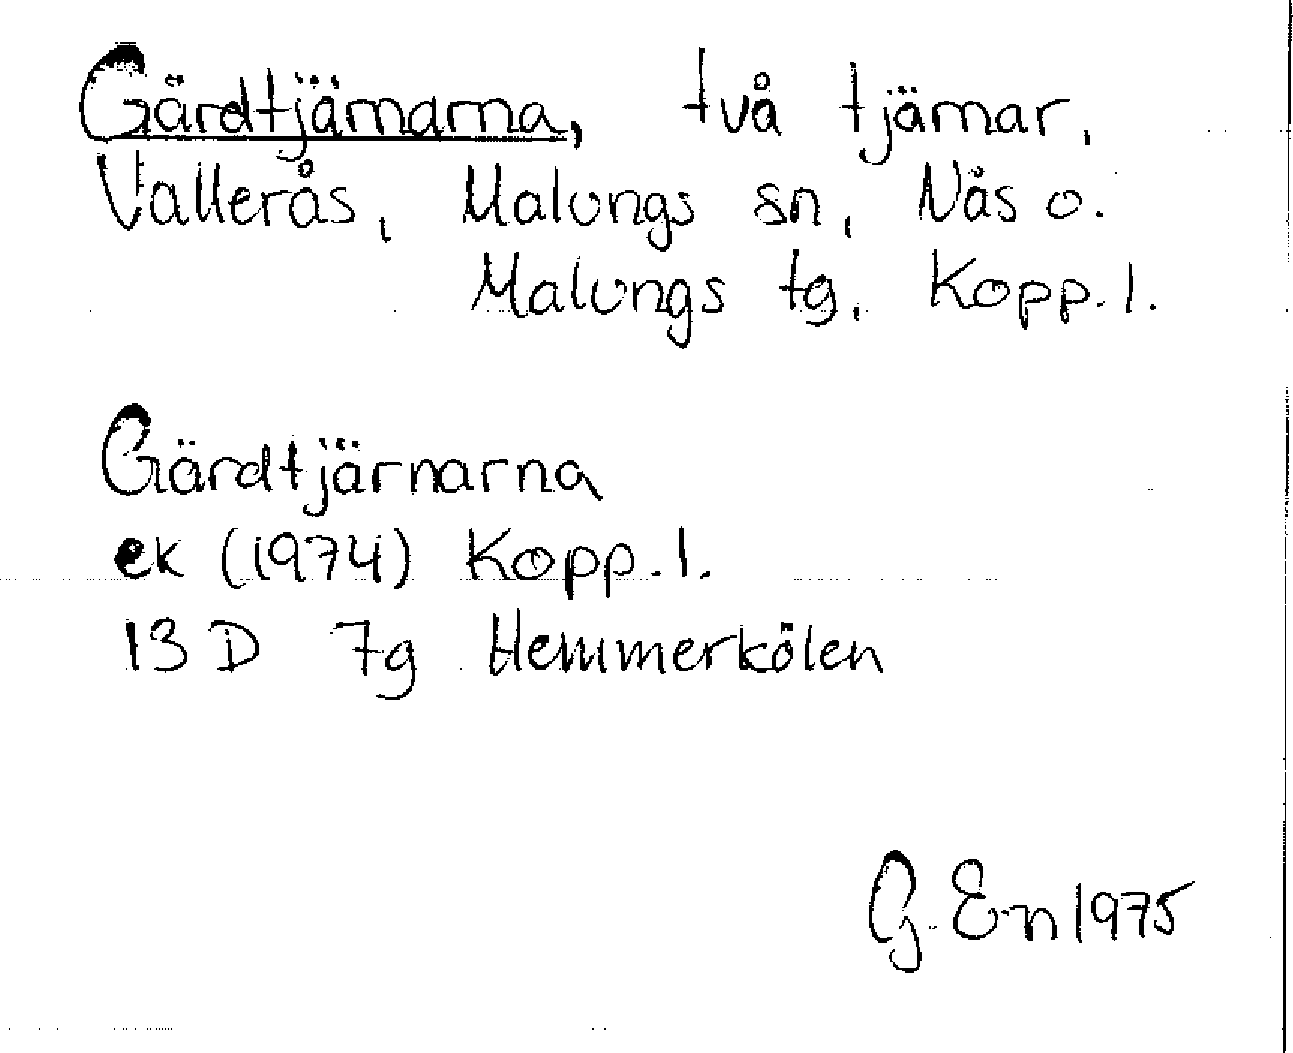 Gärdtjärnarna, två tjärnar,
Vallerås, Malungs sn, Nås o.
Malungs tg, Kopp. l.
Gärdtjärnarna
ek (1974) Kopp. l.
13 D 7g Hemmerkölen
G. En 1975